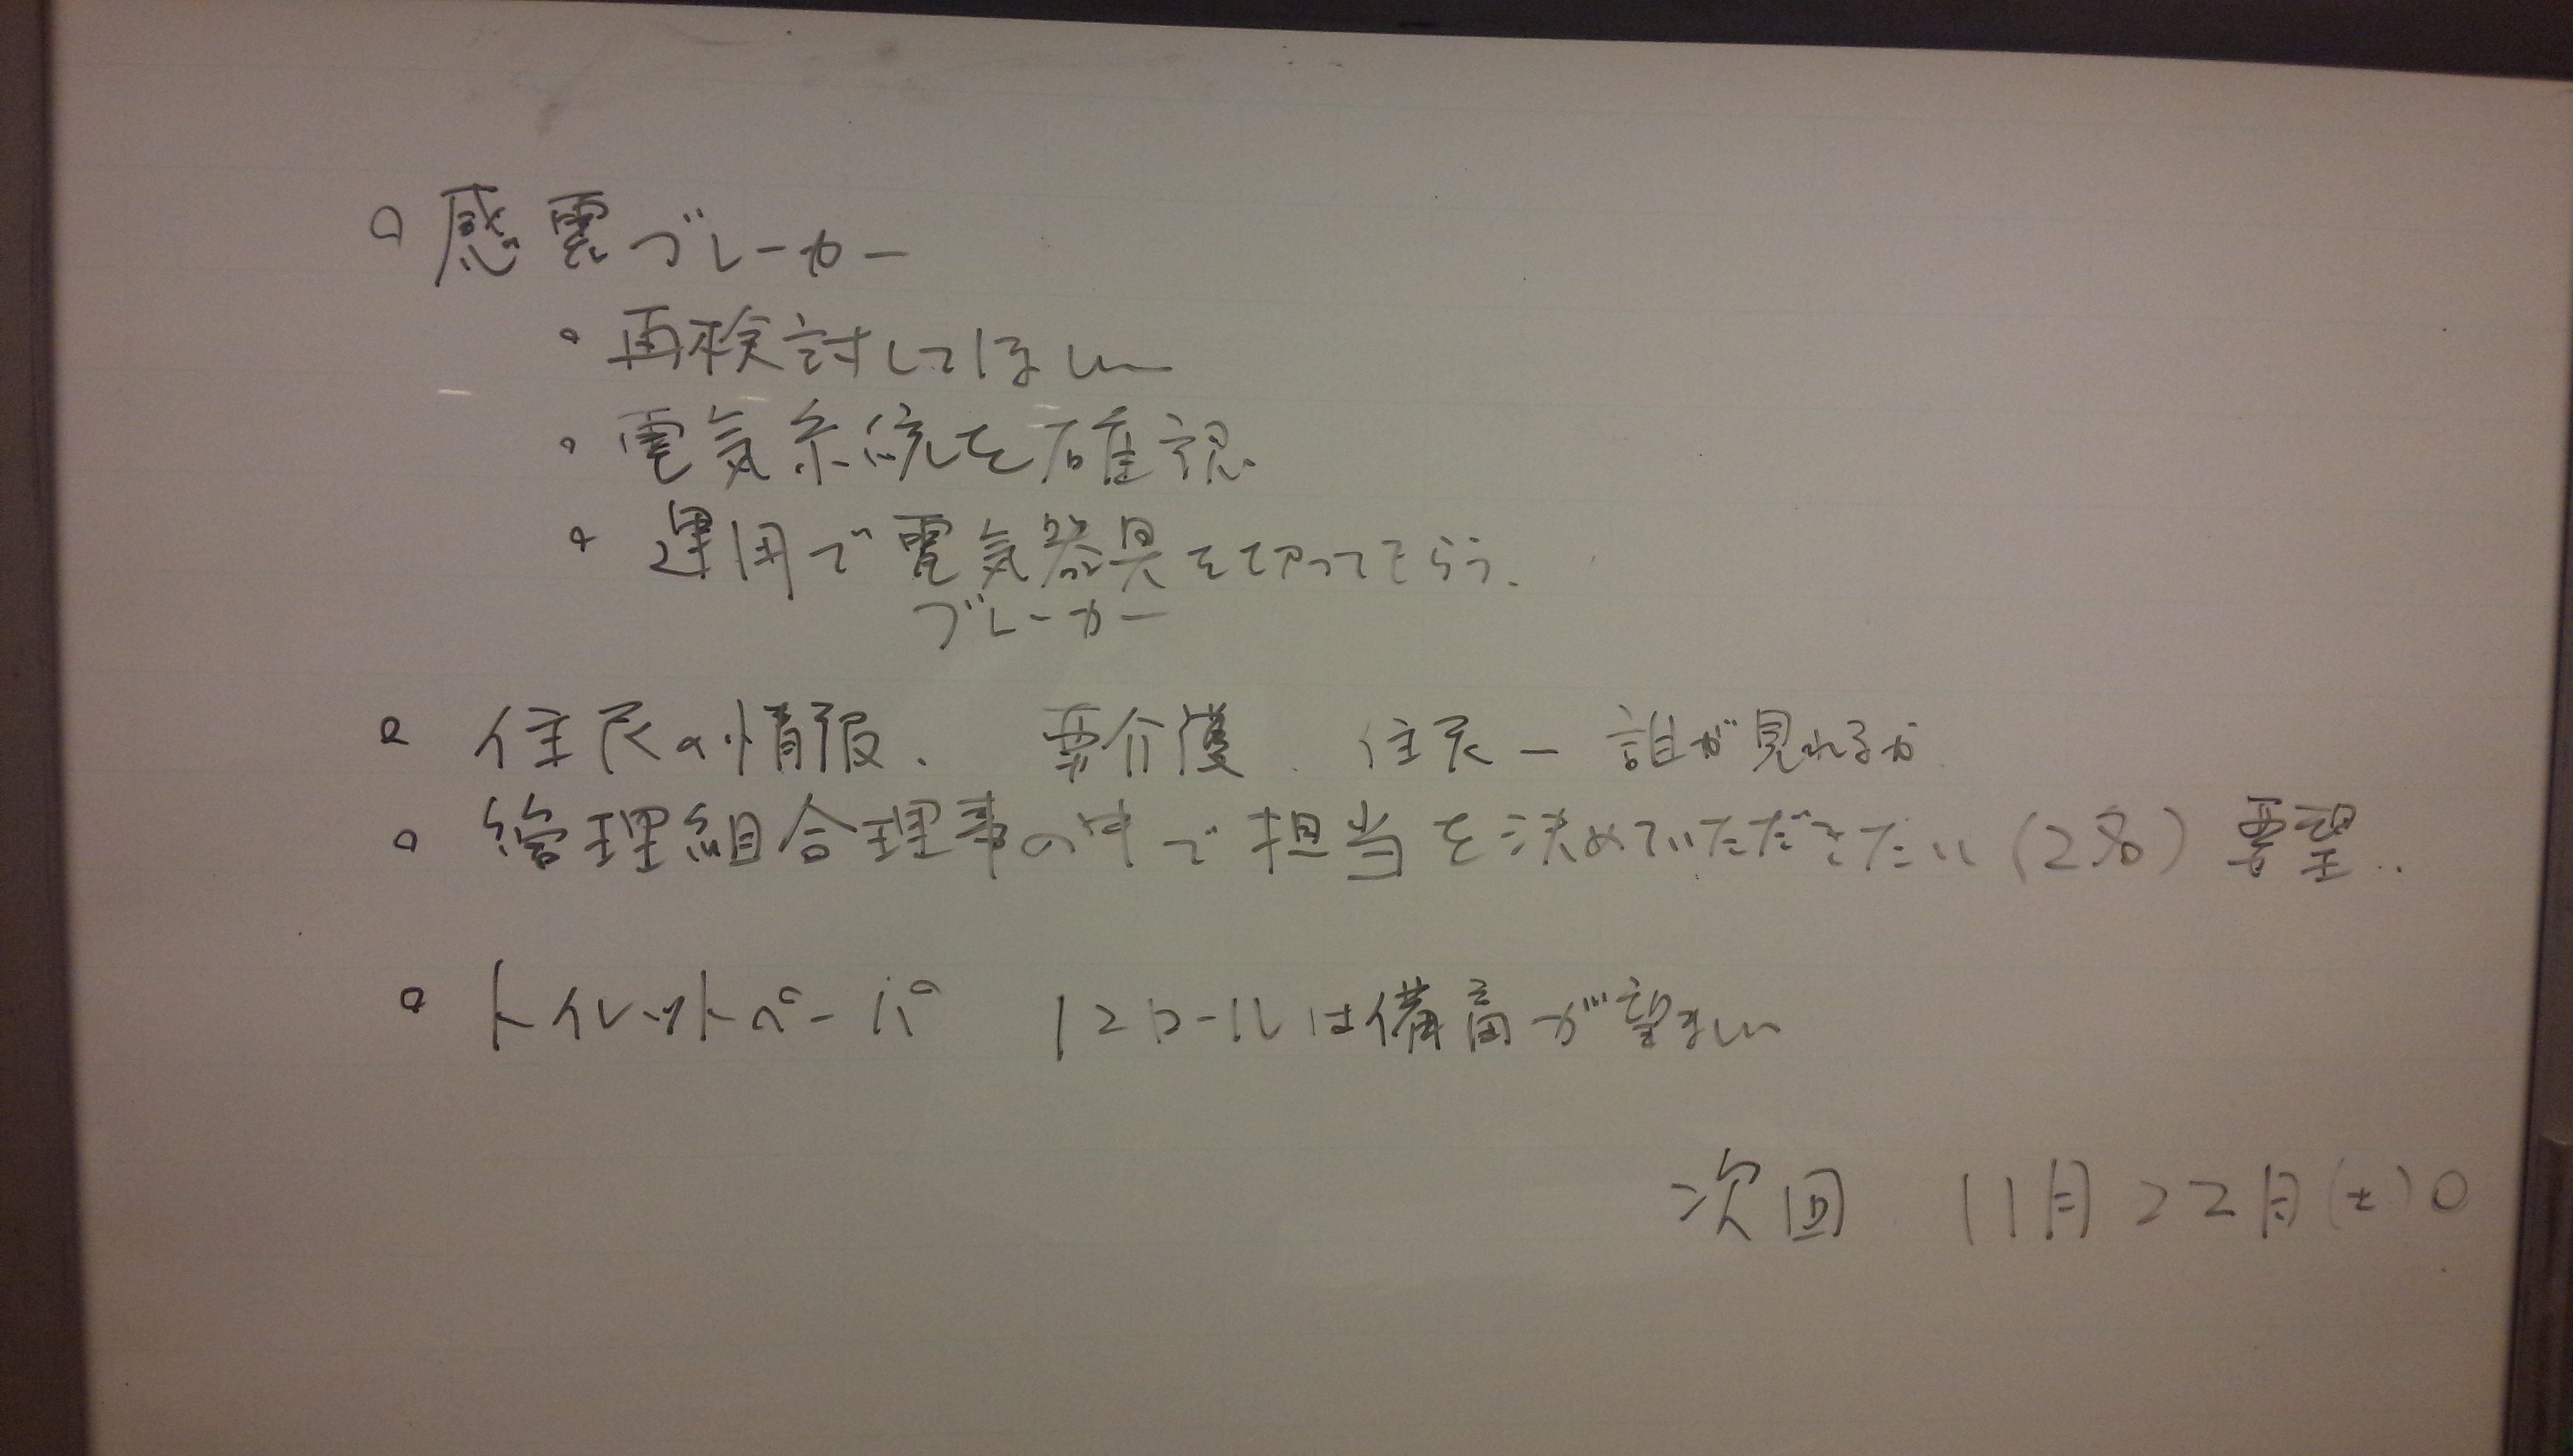 ○ 感震ブレーカー
・再検討してほしい
・電気系統を確認
・運用で電気器具を切ってもらう.
ブレーカー
○ 住民の情報. 要介護 住民 ー 誰が見れるか
○ 管理組合理事の中で担当を決めていただきたい(2名)要望..
○ トイレットペーパ 12ロールは備蓄が望ましい
次回 11月22日(土)○